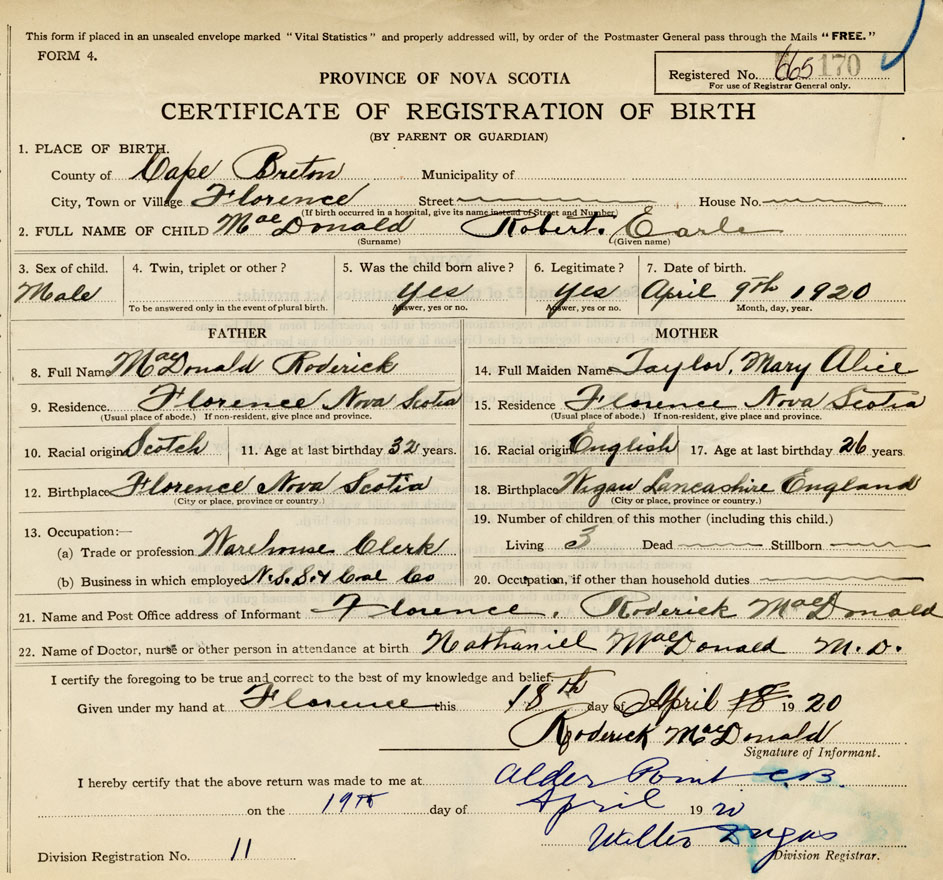 This form if placed in an unsealed envelope marked "Vital Statistics" and properly addressed will, by order of the Postmaster General pass through the Mails "FREE."
FORM 4.
Registered No. 665 170
For use of Registrar General only.
PROVINCE OF NOVA SCOTIA
CERTIFICATE OF REGISTRATION OF BIRTH
(BY PARENT OR GUARDIAN)
1. PLACE OF BIRTH.
County of Cape Breton Municipality of
City, Town or Village Florence Street House No.
(If birth occurred in a hospital, give its name instead of Street and Number)
2. FULL NAME OF CHILD MacDonald Robert Earle
(Surname) (Given name)
3. Sex of child. 4. Twin, triplet or other? 5. Was the child born alive? 6. Legitimate? 7. Date of birth.
Male Yes Yes April 9th 1920
To be answered only in the event of plural birth. Answer, yes or no. Answer, yes or no. Month, day, year.
FATHER
8. Full Name MacDonald Roderick
9. Residence. Florence Nova Scotia
(Usual place of abode.) If non-resident, give place and province.
10. Racial origin Scotch 11. Age at last birthday 32 years.
12. Birthplace Florence Nova Scotia
(City or place, province or country.)
13. Occupation:—
(a) Trade or profession Warehouse Clerk
(b) Business in which employed N.S.S.& Coal Co
MOTHER
14. Full Maiden Name Taylor, Mary Alice
15. Residence Florence Nova Scotia
(Usual place of abode.) If non-resident, give place and province.
16. Racial origin English 17. Age at last birthday 26 years.
18. Birthplace Wigan Lancashire England
(City or place, province or country.)
19. Number of children of this mother (including this child.)
Living 3 Dead Stillborn
20. Occupation, if other than household duties
21. Name and Post Office address of Informant Florence. Roderick MacDonald
22. Name of Doctor, nurse or other person in attendance at birth Nathaniel MacDonald M.D.
I certify the foregoing to be true and correct to the best of my knowledge and belief.
Given under my hand at Florence this 18th day of April 18 1920
Roderick MacDonald
Signature of Informant.
I hereby certify that the above return was made to me at Alder Point C.B.
on the 19th day of April 1920
Dugas
Division Registration No. 11 Division Registrar.